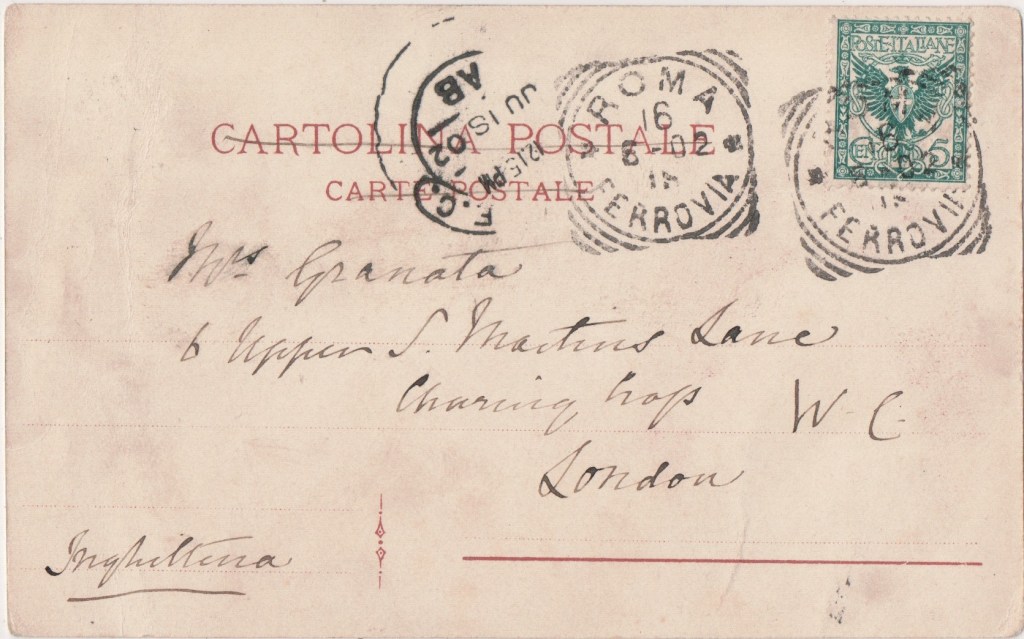 POSTE·ITALIANE
CENT. 5
ROMA
16
6-02
FERROVIA
FERROVIA
AB
JU 18
02
12.15 PM
F.C.
CARTOLINA POSTALE
CARTE POSTALE
Mrs Granata
6 Upper S. Martins Lane
Charing Cross W.C.
London
Inghilterra